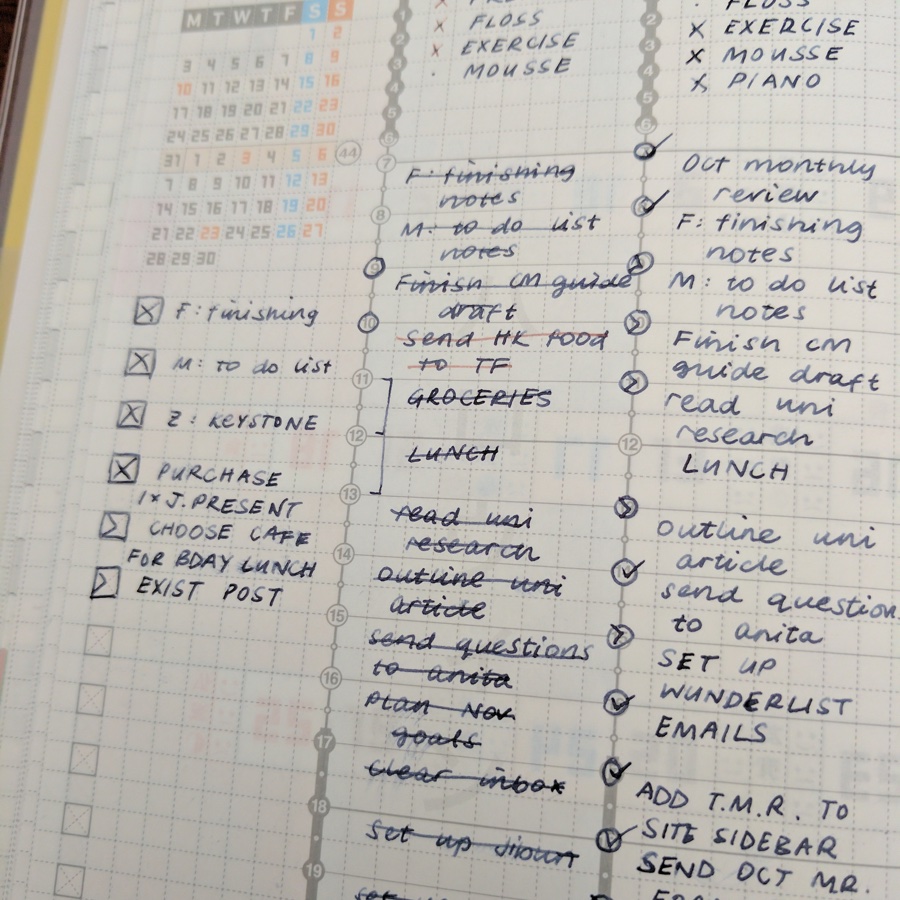 M T W T F S S
1 2
3 4 5 6 7 8 9
10 11 12 13 14 15 16
17 18 19 20 21 22 23
24 25 26 27 28 29 30
31 1 2 3 4 5 6
44
7 8 9 10 11 12 13
14 15 16 17 18 19 20
21 22 23 24 25 26 27
28 29 30
F: finishing
M: to do list
Z: KEYSTONE
PURCHASE
1x J. PRESENT
CHOOSE CAFE
FOR BDAY LUNCH
EXIST POST
1
x FLOSS
2
x EXERCISE
3
· MOUSSE
4
5
6
7
F: finishing
notes
8
M: to do list
notes
9
Finish CM guide
draft
10
send HK food
to TF
11
GROCERIES
12
LUNCH
13
read uni
research
14
outline uni
article
15
send questions
to anita
16
plan Nov
goals
17
clear inbox
18
set up
19
set
· FLOSS
2
x EXERCISE
3
x MOUSSE
4
x PIANO
5
6
Oct monthly
review
F: finishing
notes
M: to do list
notes
Finish CM
guide draft
read uni
research
12
LUNCH
outline uni
article
send question
to anita
SET UP
WUNDERLIST
EMAILS
ADD T.M.R. TO
SITE SIDEBAR
SEND OCT MR.